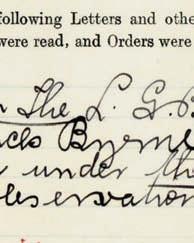 following Letters and othe
were read, and Orders were
The L. G. B
Byrne
under the